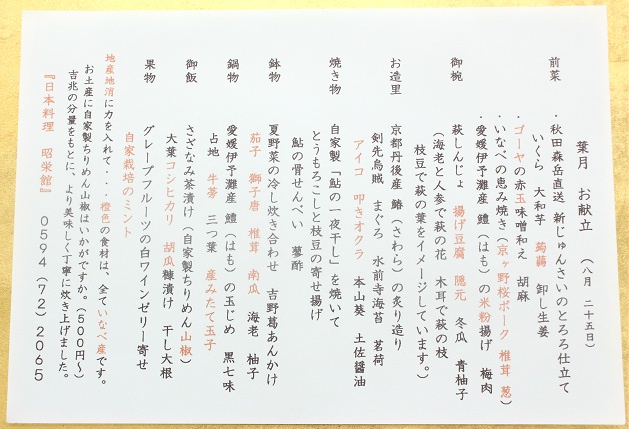 葉月 お献立 (八月 二十五日)
前菜 ・秋田森岳直送 新じゅんさいのとろろ仕立て
いくら 大和芋 蒟蒻 卸し生姜
・ゴーヤの赤玉味噌和え 胡麻
・いなべの恵み焼き(京ヶ野桜ポーク 椎茸 葱)
・愛媛伊予灘産 鱧(はも)の米粉揚げ 梅肉
御椀 萩しんじょ 揚げ豆腐 隠元 冬瓜 青柚子
(海老と人参で萩の花 木耳で萩の枝
枝豆で萩の葉をイメージしています。)
お造里 京都丹後産 鰆(さわら)の炙り造り
剣先烏賊 まぐろ 水前寺海苔 茗荷
アイコ 叩きオクラ 本山葵 土佐醤油
焼き物 自家製「鮎の一夜干し」を焼いて
とうもろこしと枝豆の寄せ揚げ
鮎の骨せんべい 蓼酢
鉢物 夏野菜の冷し炊き合わせ 吉野葛あんかけ
茄子 獅子唐 椎茸 南瓜 海老 柚子
鍋物 愛媛伊予灘産 鱧(はも)の玉じめ 黒七味
占地 牛蒡 三つ葉 産みたて玉子
御飯 さざなみ茶漬け(自家製ちりめん山椒)
大葉 コシヒカリ 胡瓜糠漬け 干し大根
果物 グレープフルーツの白ワインゼリー寄せ
自家栽培のミント
地産地消に力を入れて・・・橙色の食材は、全ていなべ産です。
お土産に自家製ちりめん山椒はいかがですか。(500円~)
吉兆の分量をもとに、より美味しく丁寧に炊き上げました。
『日本料理 昭栄館』 0594(72)2065